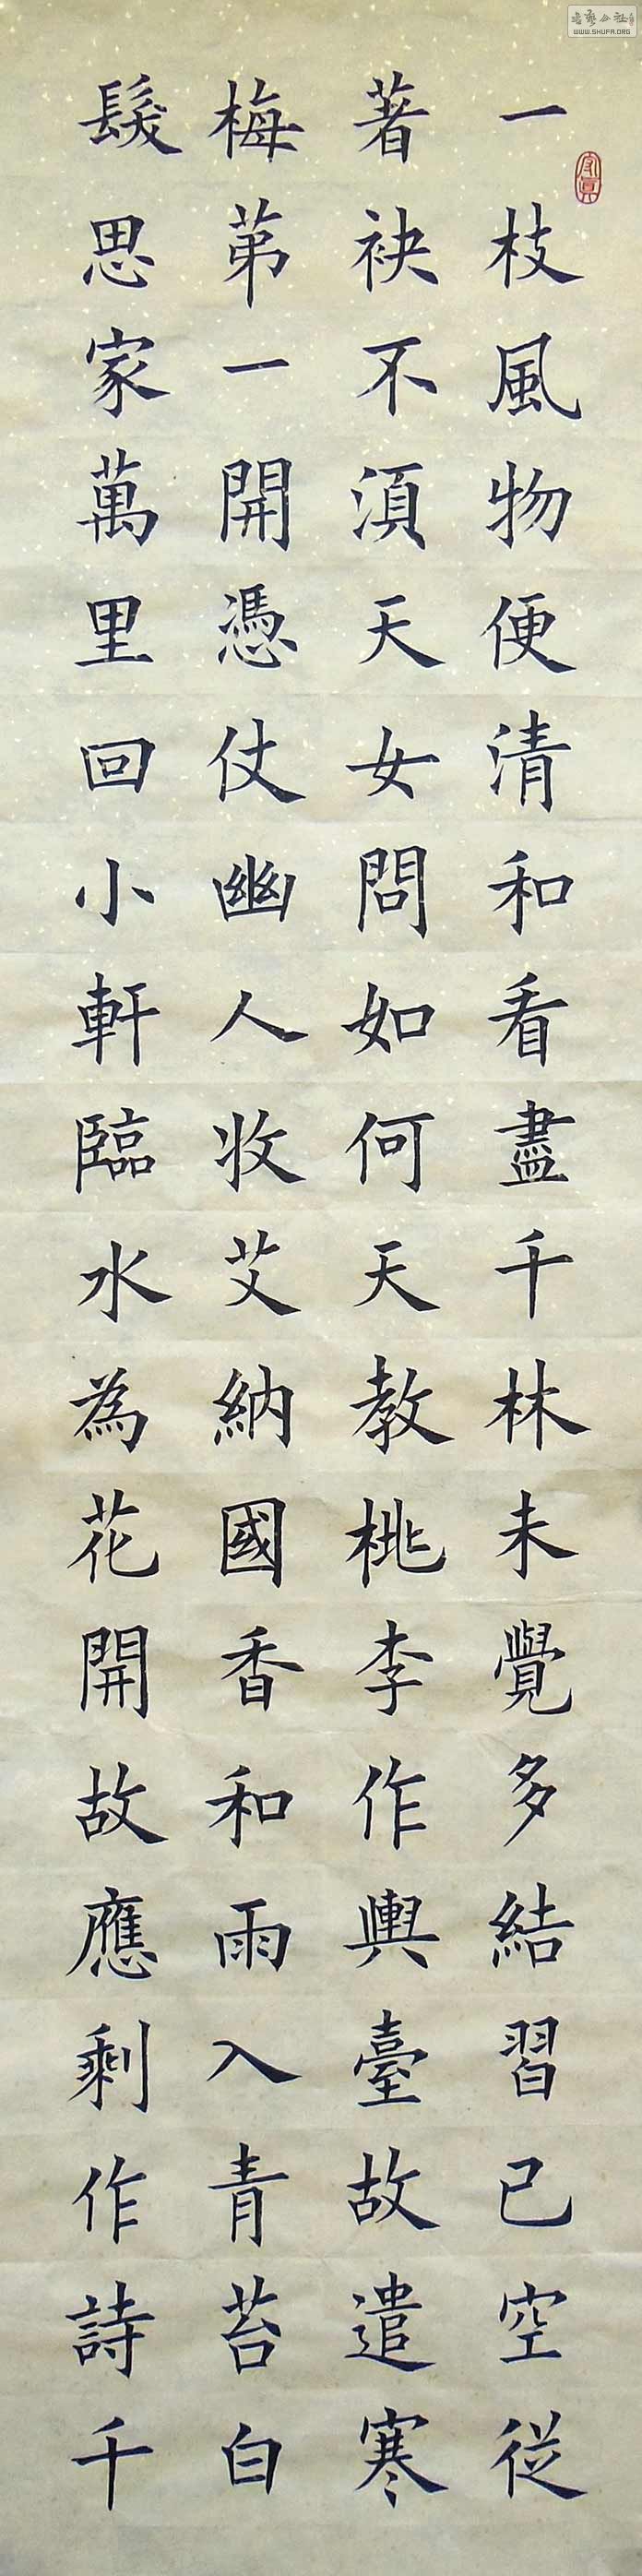 一枝風物便清和看盡千林未覺多結習已空從
著袂不須天女問如何天教桃李作輿臺故遣寒
梅苐一開憑仗幽人收艾納國香和雨入青苔白
髮思家萬里回小軒臨水為花開故應剩作詩千
WWW.SHUFA.ORG